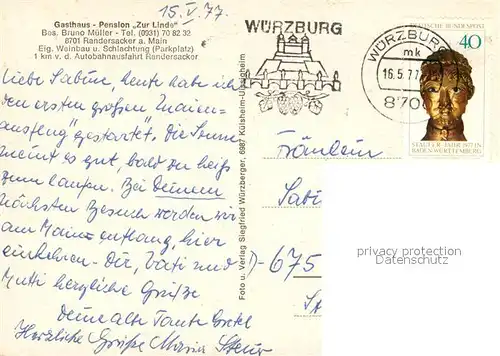 15. V. 77.
Gasthaus - Pension „Zur Linde"
Bes. Bruno Müller - Tel. (0931) 70 82 32
8701 Randersacker a. Main
Eig. Weinbau u. Schlachtung (Parkplatz)
1 km v. d. Autobahnausfahrt Randersacker
Liebe Sabine, heute habe ich
den ersten großen Maien-
ausflug "gestartet". Die Sonne
meint es gut, bald zu heiß
zum laufen. Bei Deinem
nächsten Besuch werden wir
am Main entlang, hier
einkehren - Dir, Vati und
Mutti herzliche Grüße
Deine alte Tante Gretel
Herzliche Grüße Maria
Foto u. Verlag Siegfried Würzberger, 6987 Külsheim-Uissigheim
WÜRZBURG
WÜRZBURG
mk
16.5.77
870
DEUTSCHE BUNDESPOST
40
STAUFER-JAHR 1977 IN
BADEN-WÜRTTEMBERG
Fräulein
Sabi
D-675
privacy protection
Datenschutz